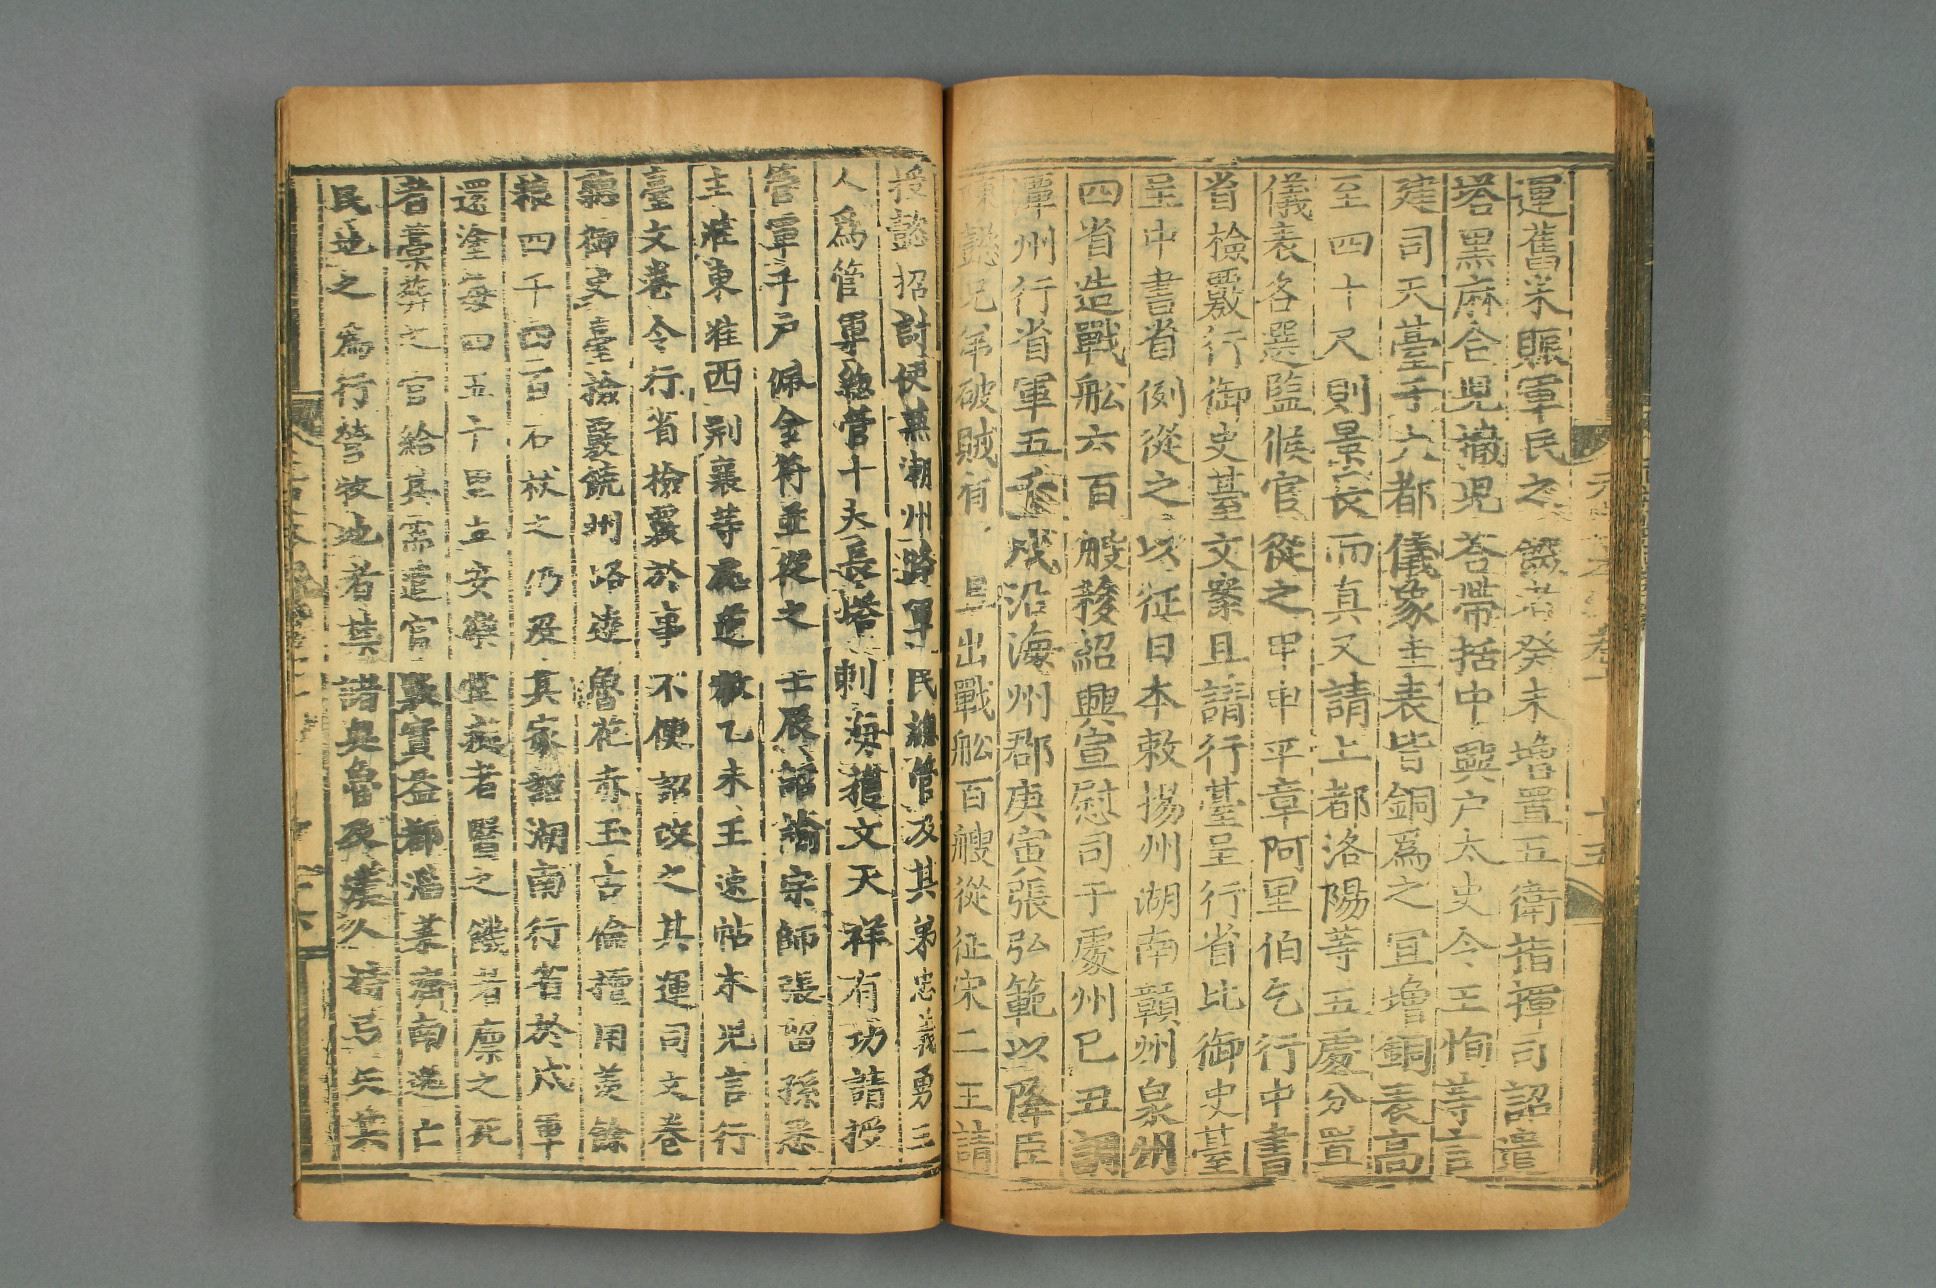 運舊米賑軍民之飢者癸未增置五衛指揮司詔遣
塔黑麻合児撒児荅帶括中興户太史令王恂等言
建司天臺于大都儀象圭表皆銅爲之宜增銅表高
至四十尺則景長而真又請上都洛陽等五處分置
儀表各選監候官從之甲申平章阿里伯乞行中書
省檢覈行御史臺文案且請行臺呈行省比御史臺
呈中書省例從之以征日本敕揚州湖南贑州泉州
四省造戰舩六百艘移紹興宣慰司于處州己丑調
潭州行省軍五千戍沿海州郡庚寅張弘範以降臣
陳懿兄弟破賊有 且出戰舩百艘從征宋二王請
授懿招討使兼潮州路軍民總管及其弟忠義勇三
人爲管軍總管十夫長塔剌海獲文天祥有功請授
管軍千户佩金符並從之壬辰詔諭宗師張留孫悉
主淮東淮西荆襄等處道教乙未玉速帖木児言行
臺文卷令行省檢覈於事不便詔改之其運司文卷
聽御史臺檢覈饒州路達魯花赤玉古倫擅用羡餘
粮四千四百石杖之仍没其家詔湖南行省於戍軍
還塗每四五十里立安樂堂疾者醫之饑者廪之死
者藁葬之官給其需遣官覈實益都淄萊濟南逃亡
民地之爲行營牧地者禁諸奥魯及漢人持弓矢其